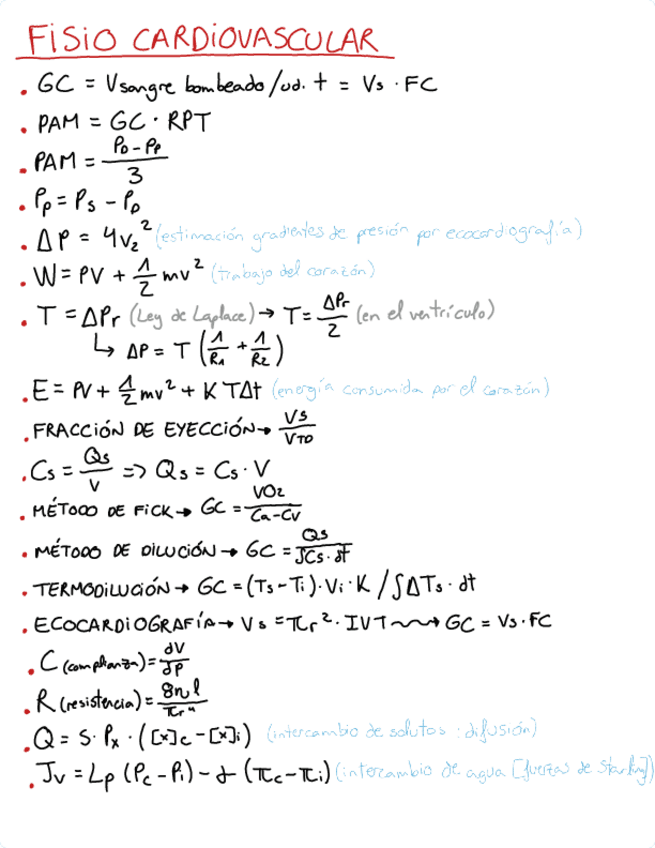 FISIO CARDIOVASCULAR
. GC = Vsangre bombeado/ud. t = Vs · FC
. PAM = GC · RPT
. PAM = (PD - PP)/3
. Pp = Ps - PD
. ΔP = 4v₂² (estimación gradientes de presión por ecocardiografía)
. W = PV + 1/2 mv² (trabajo del corazón)
. T = ΔPr (Ley de Laplace) → T = ΔPr/2 (en el ventrículo)
↳ ΔP = T (1/R1 + 1/R2)
. E = PV + 1/2 mv² + K TΔt (energía consumida por el corazón)
. FRACCIÓN DE EYECCIÓN → VS/VTD
. Cs = Qs/V => Qs = Cs · V
. MÉTODO DE FICK → GC = VO2/(Ca-Cv)
. MÉTODO DE DILUCIÓN → GC = Qs/∫Cs · dt
. TERMODILUCIÓN → GC = (Ts - Ti) · Vi · K / ∫ΔTs · dt
. ECOCARDIOGRAFÍA → Vs = πr² · IVT ⟿ GC = Vs · FC
. C (complianza) = dV/dP
. R (resistencia) = 8nl/πr⁴
. Q = S · Px · ([x]c - [x]i) (intercambio de solutos : difusión)
. Jv = Lp (Pc - Pi) - d (πc - πi) (intercambio de agua [fuerzas de Starling])